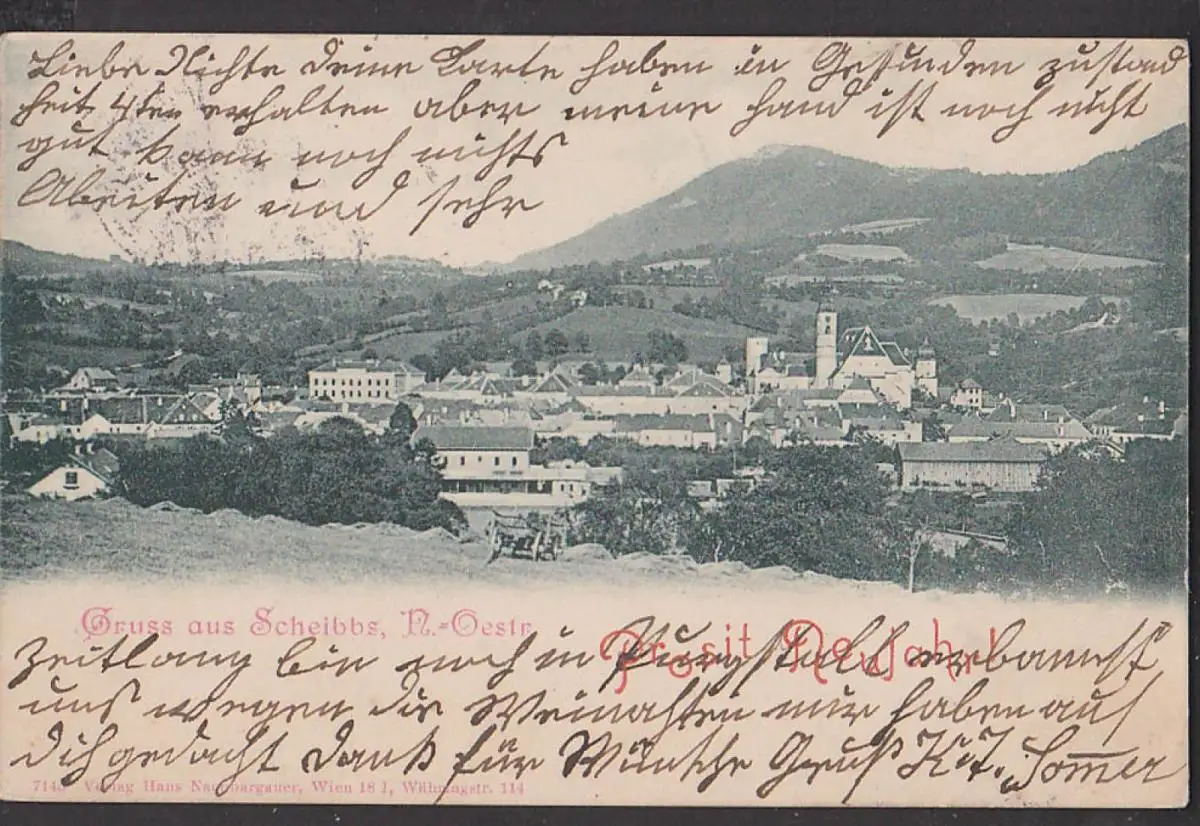 Liebe Nichte deine Karte haben in Gesunden zustand
heit 4ten erhalten aber meine hand ist noch nicht
gut kann noch nichts
Abeiten und sehr
Gruss aus Scheibbs, N.-Oestr.
Prosit Neujahr!
Zeitlang bin noch in Purgstall
uns wegen die Weinachten mir haben auf
dich gedacht Dank für Wünsche Gruß Sommer
7145 Verlag Hans Nachbargauer, Wien 18/1, Währingstr. 114